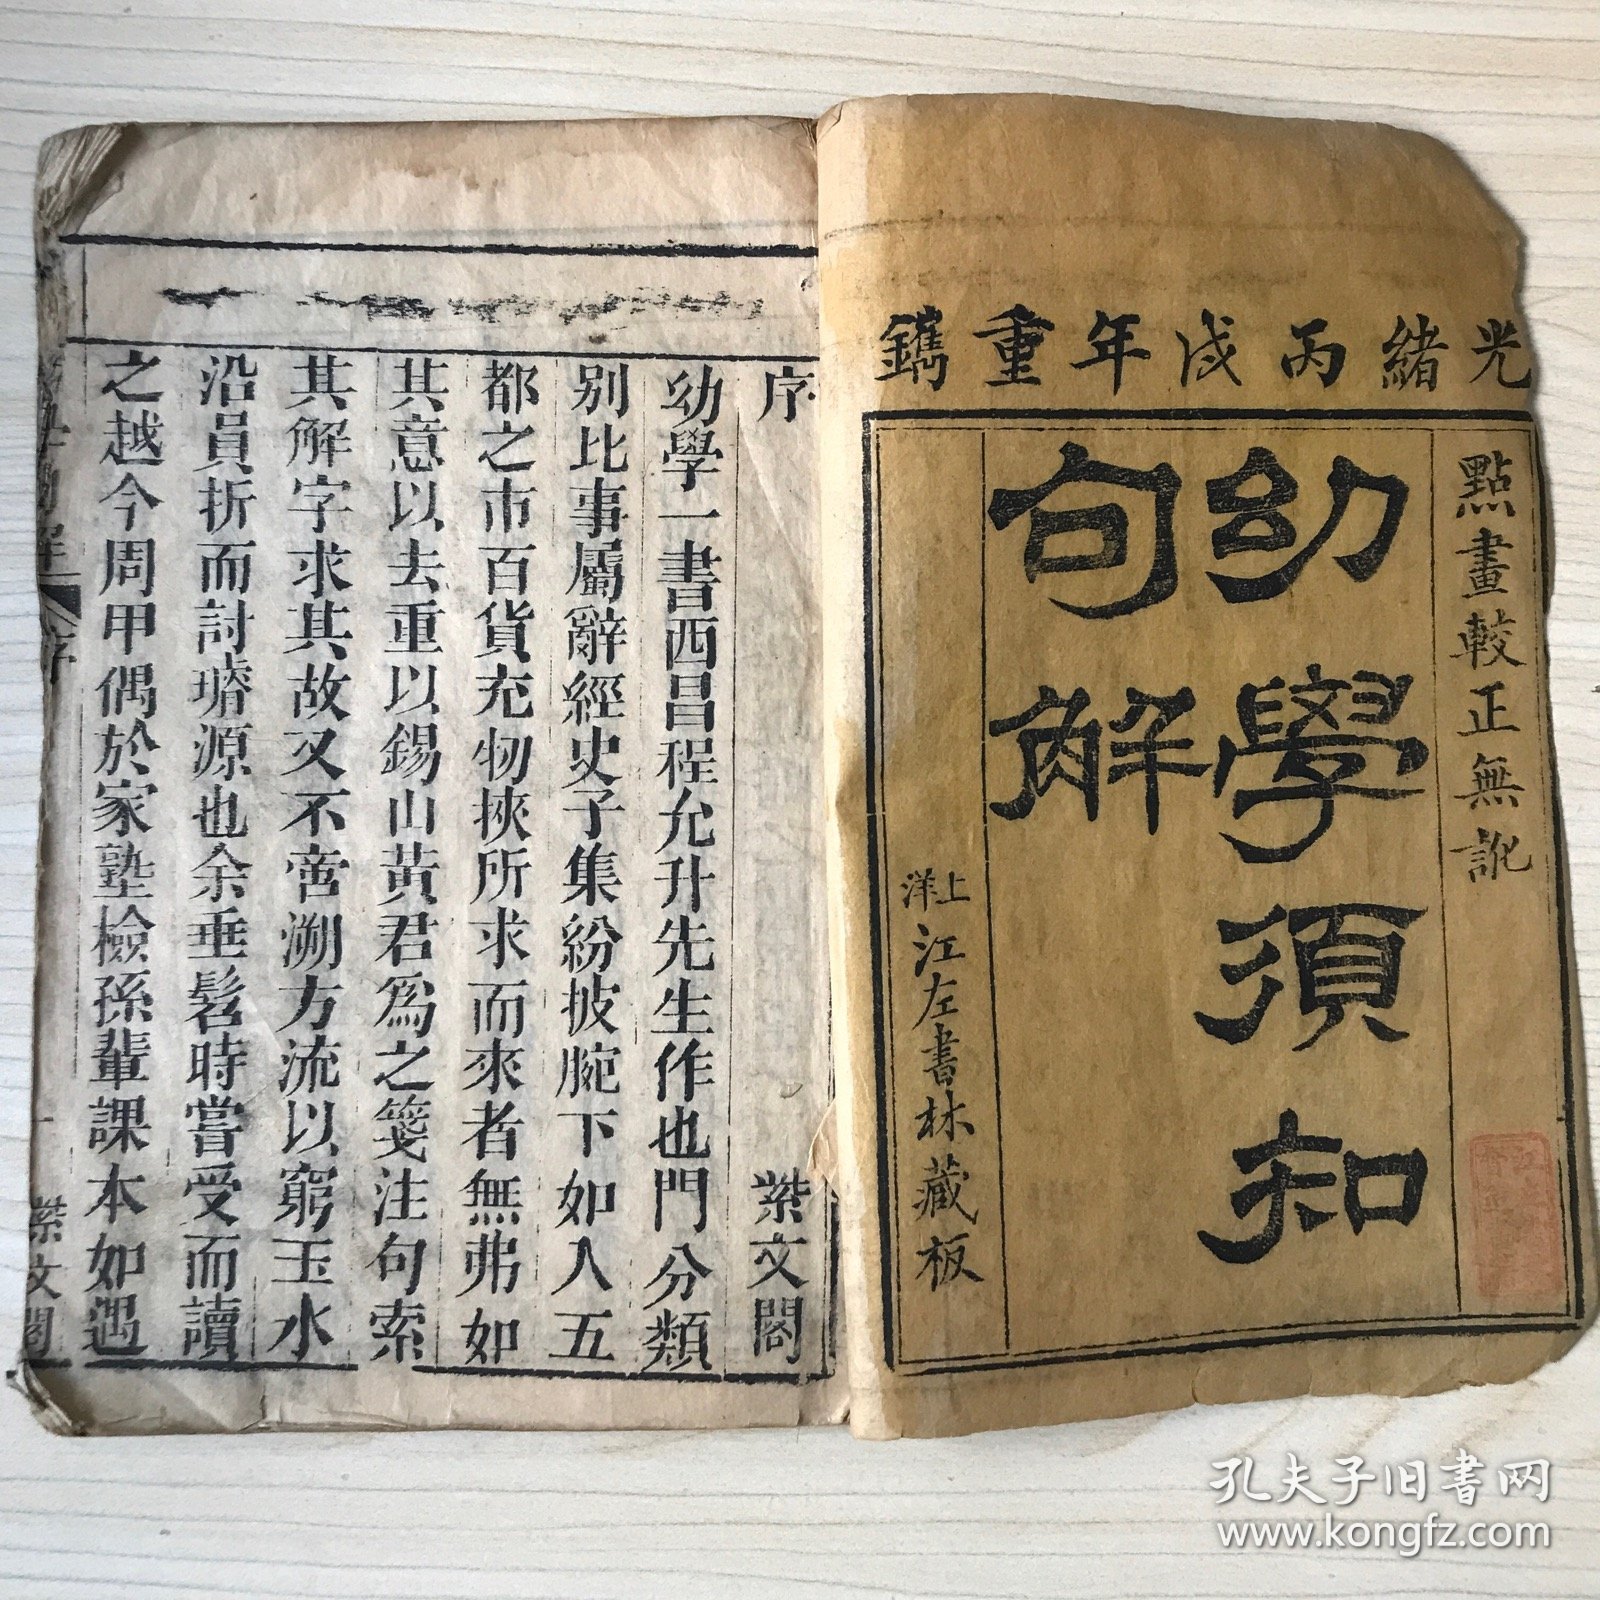 光緒丙戌年重鐫
點畫較正無訛
幼學須知
句解
上洋江左書林藏板
序 紫文閣
幼學一書西昌程允升先生作也門分類
别比事屬辭經史子集紛披腕下如入五
都之市百貨充牣挾所求而來者無弗如
其意以去重以錫山黃君為之箋注句索
其解字求其故又不啻溯方流以窮玉水
沿員折而討璿源也余垂髫時嘗受而讀
之越今周甲偶於家塾檢孫輩課本如遇
序
紫文閣
孔夫子旧书网
www.kongfz.com